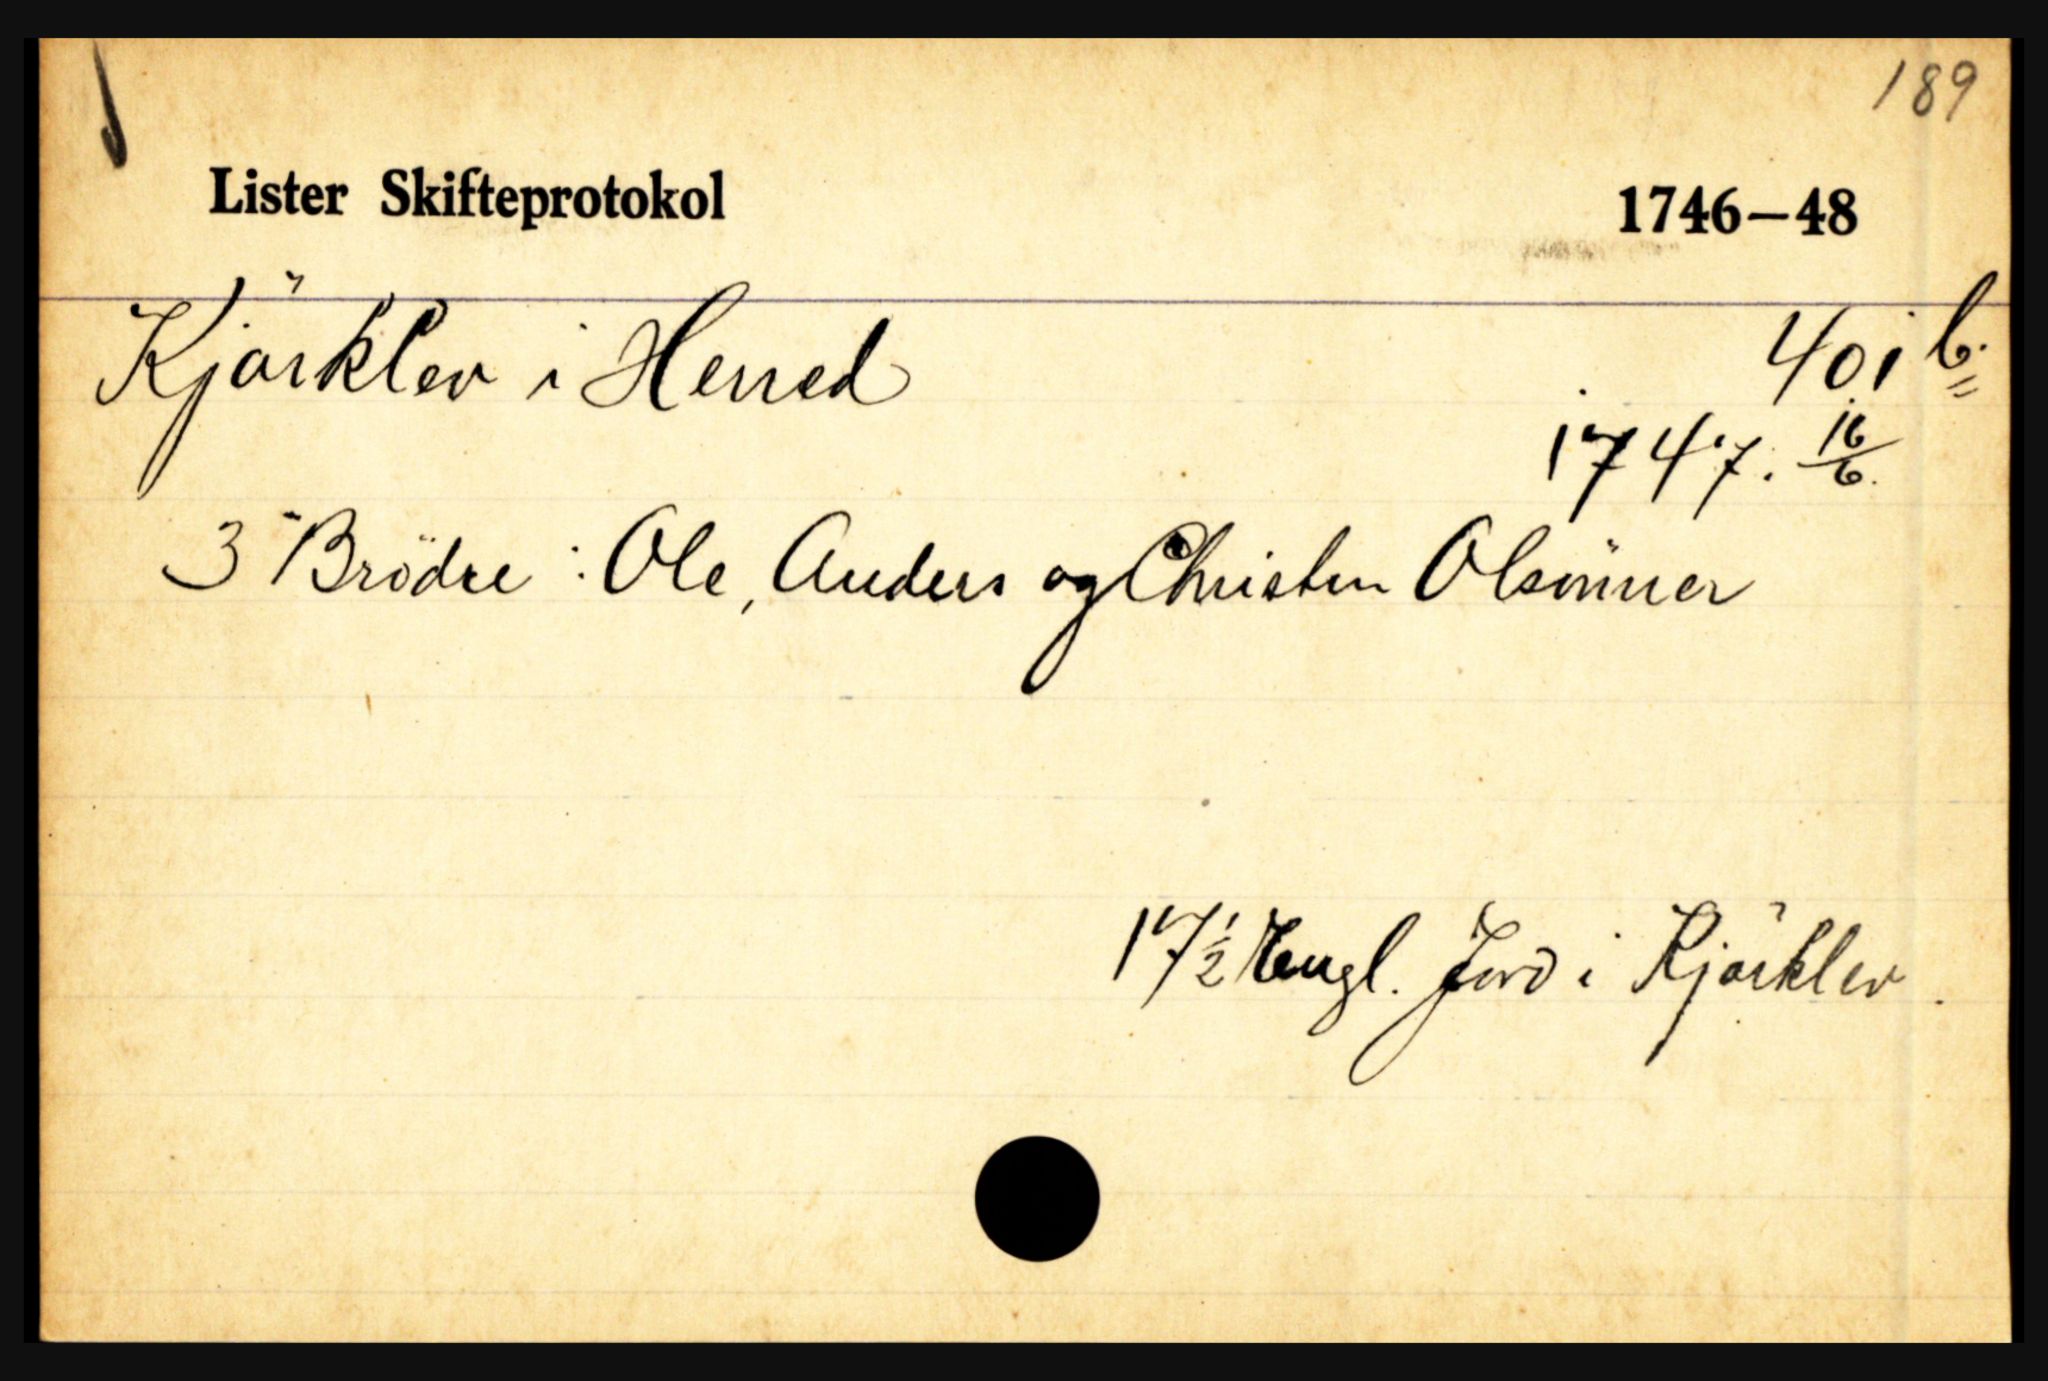 189
Lister Skifteprotokol 1746—48
Kjörklev i Herred 401 b.
1747. 16/6.
3 Brödre : Ole, Anders og Christen Olsönner
17 1/2 Engl. Jord i Kjörklev.